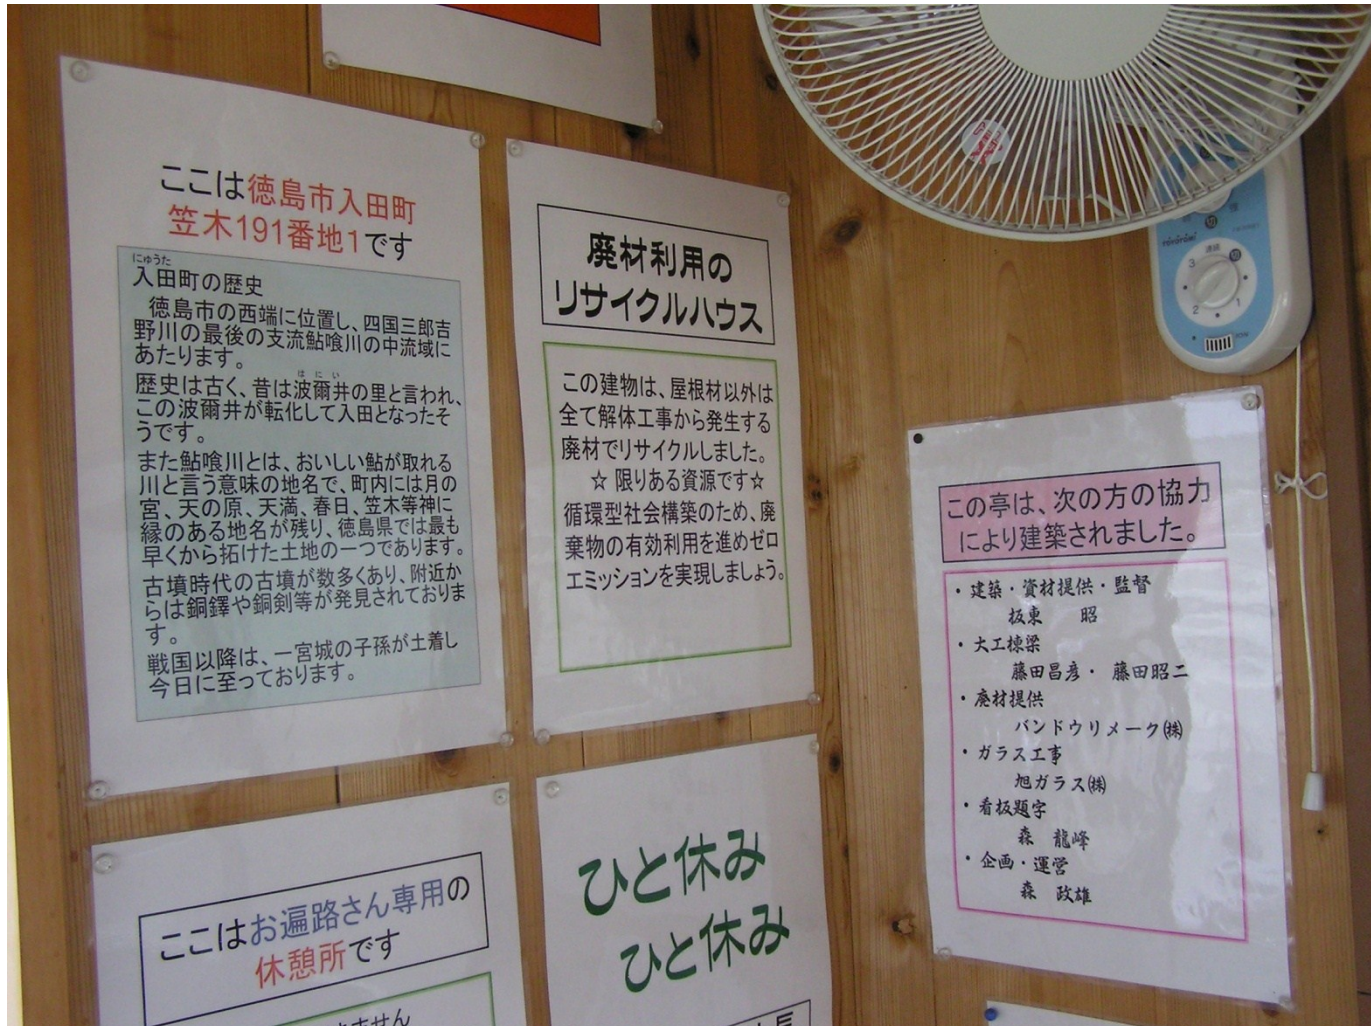 ここは徳島市入田町
笠木191番地1です
にゅうた
入田町の歴史
徳島市の西端に位置し、四国三郎吉
野川の最後の支流鮎喰川の中流域に
あたります。
はにい
歴史は古く、昔は波爾井の里と言われ、
この波爾井が転化して入田となったそ
うです。
また鮎喰川とは、おいしい鮎が取れる
川と言う意味の地名で、町内には月の
宮、天の原、天満、春日、笠木等神に
縁のある地名が残り、徳島県では最も
早くから拓けた土地の一つであります。
古墳時代の古墳が数多くあり、附近か
らは銅鐸や銅剣等が発見されておりま
す。
戦国以降は、一宮城の子孫が土着し
今日に至っております。
廃材利用の
リサイクルハウス
この建物は、屋根材以外は
全て解体工事から発生する
廃材でリサイクルしました。
☆ 限りある資源です☆
循環型社会構築のため、廃
棄物の有効利用を進めゼロ
エミッションを実現しましょう。
この亭は、次の方の協力
により建築されました。
・建築・資材提供・監督
板東 昭
・大工棟梁
藤田昌彦・ 藤田昭二
・廃材提供
バンドウリメーク㈱
・ガラス工事
旭ガラス㈱
・看板題字
森 龍峰
・企画・運営
森 政雄
ここはお遍路さん専用の
休憩所です
ません
ひと休み
ひと休み
切
連続
切
3
2
1